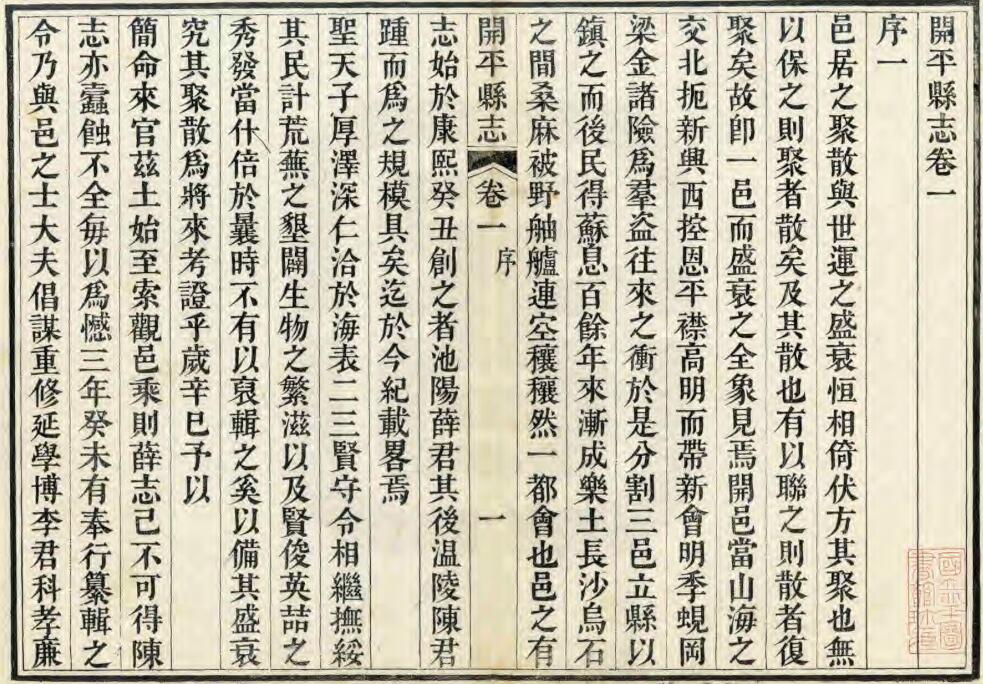 開平縣志卷一
序一
邑居之聚散與世運之盛衰恒相倚伏方其聚也無
以保之則聚者散矣及其散也有以聯之則散者復
聚矣故卽一邑而盛衰之全象見焉開邑當山海之
交北扼新興西控恩平襟高明而帶新會明季蜆岡
梁金諸險爲羣盜往來之衝於是分割三邑立縣以
鎮之而後民得蘇息百餘年來漸成樂土長沙烏石
之間桑麻被野舳艫連空穰穰然一都會也邑之有
開平縣志
卷一
序
一
志始於康熙癸丑創之者池陽薛君其後温陵陳君
踵而爲之規模具矣迄於今紀載畧焉
聖天子厚澤深仁洽於海表二三賢守令相繼撫綏
其民計荒蕪之墾闢生物之繁滋以及賢俊英喆之
秀發當什倍於曩時不有以裒輯之奚以備其盛衰
究其聚散爲將來考證乎歲辛巳予以
簡命來官茲土始至索觀邑乘則薛志已不可得陳
志亦蠧蝕不全每以爲憾三年癸未有奉行纂輯之
令乃與邑之士大夫倡謀重修延學博李君科孝廉